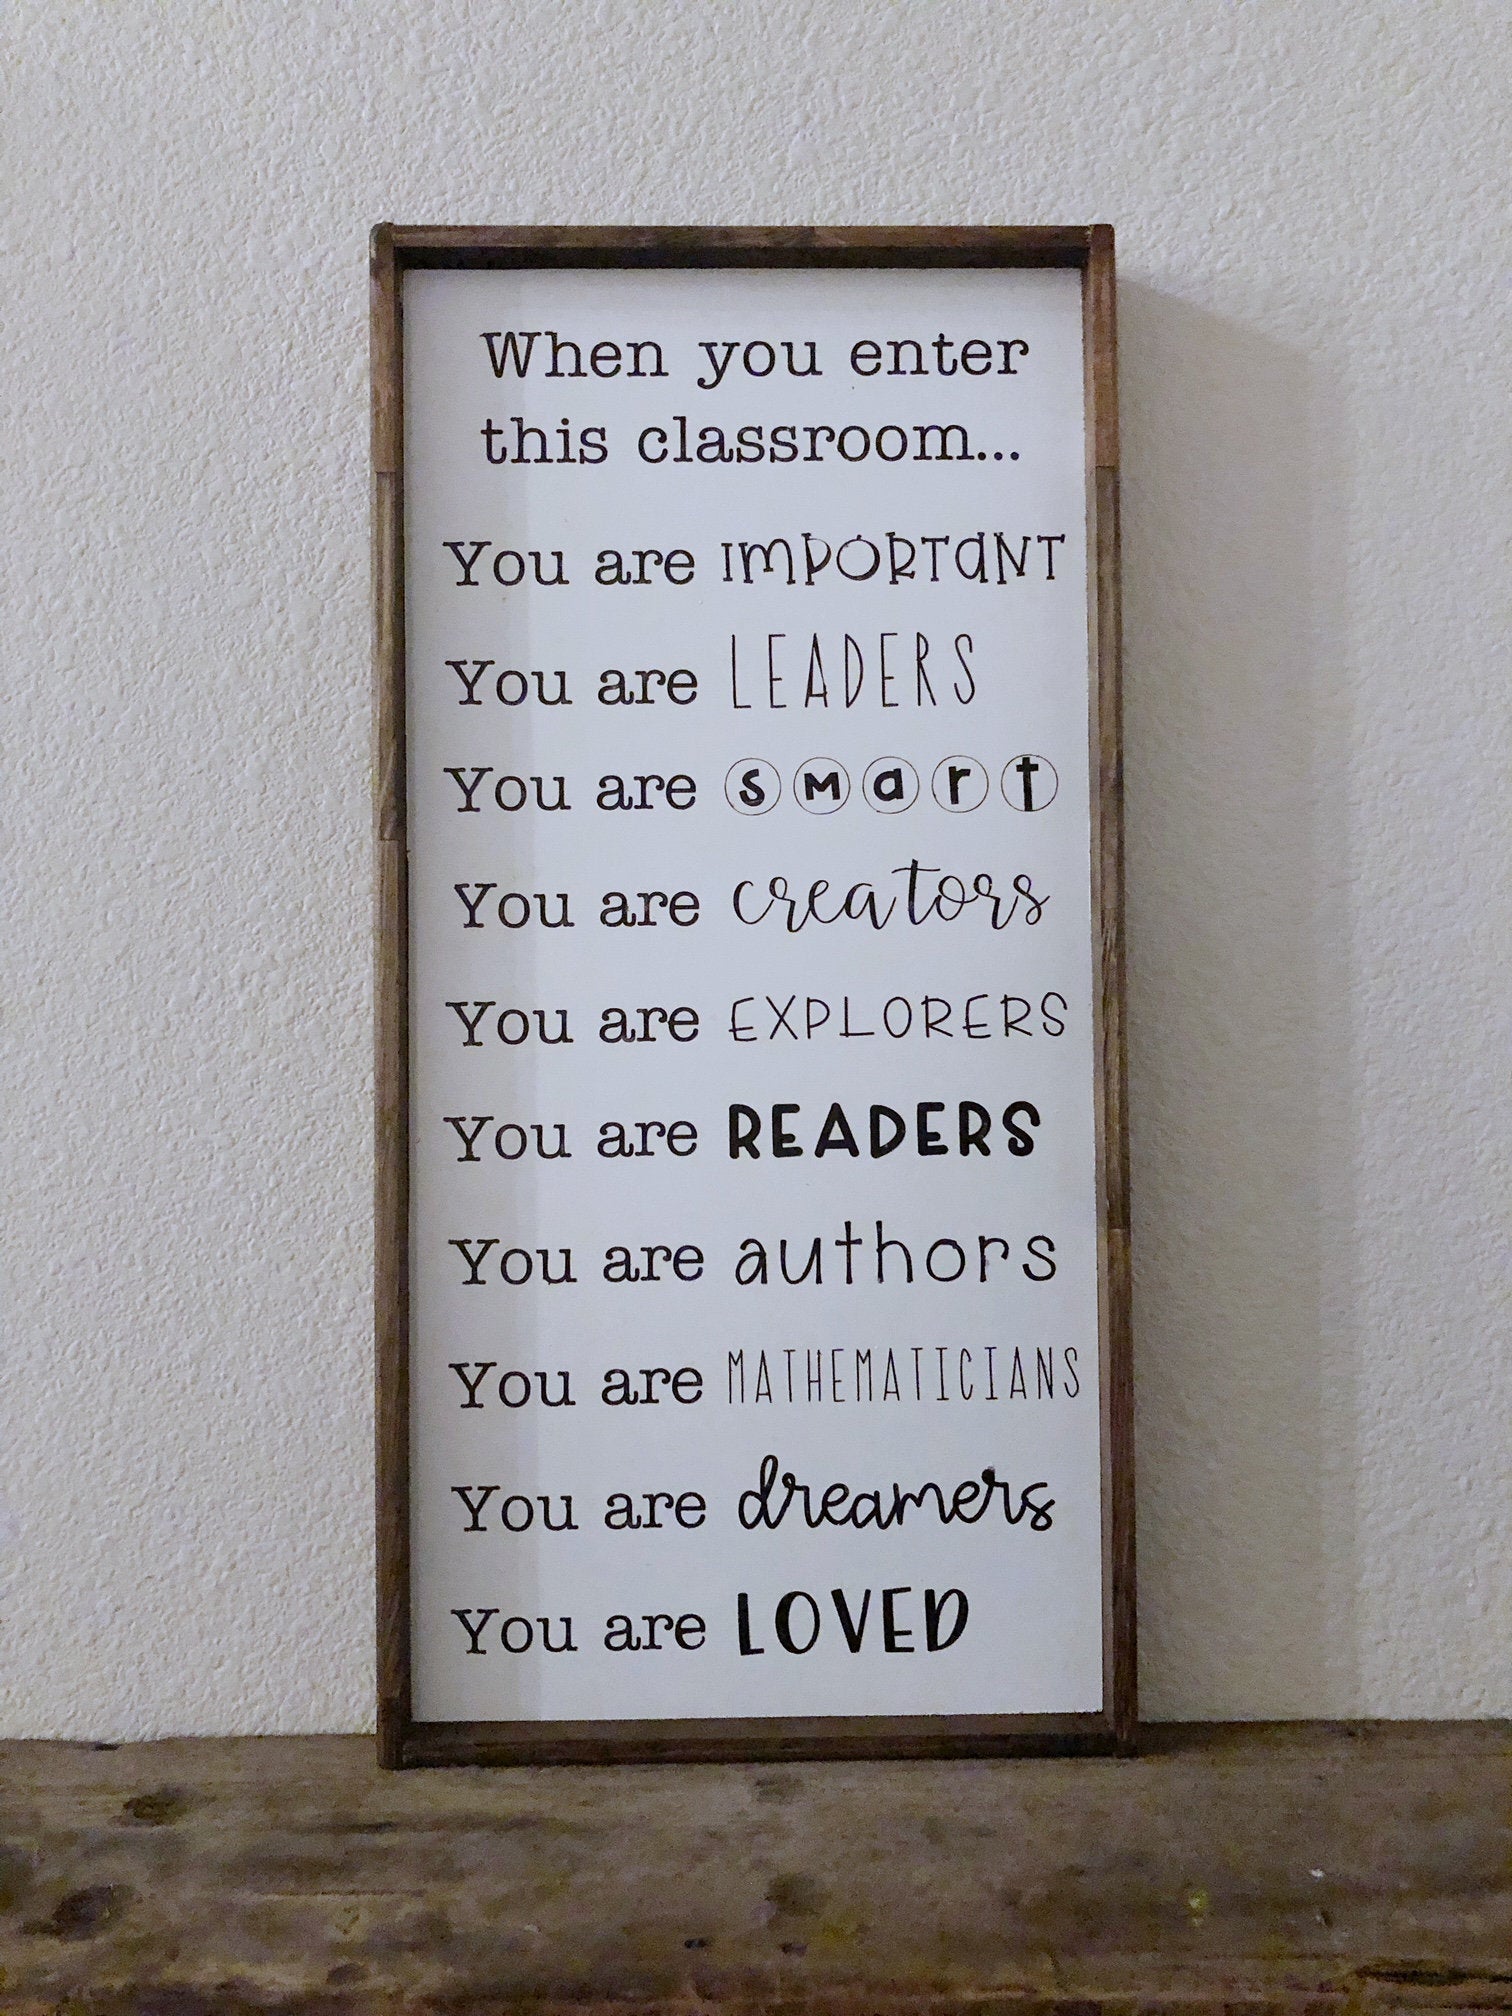 When you enter
this classroom...
You are IMPORTANT
You are LEADERS
You are smart
You are creators
You are EXPLORERS
You are READERS
You are authors
You are MATHEMATICIANS
You are dreamers
You are LOVED